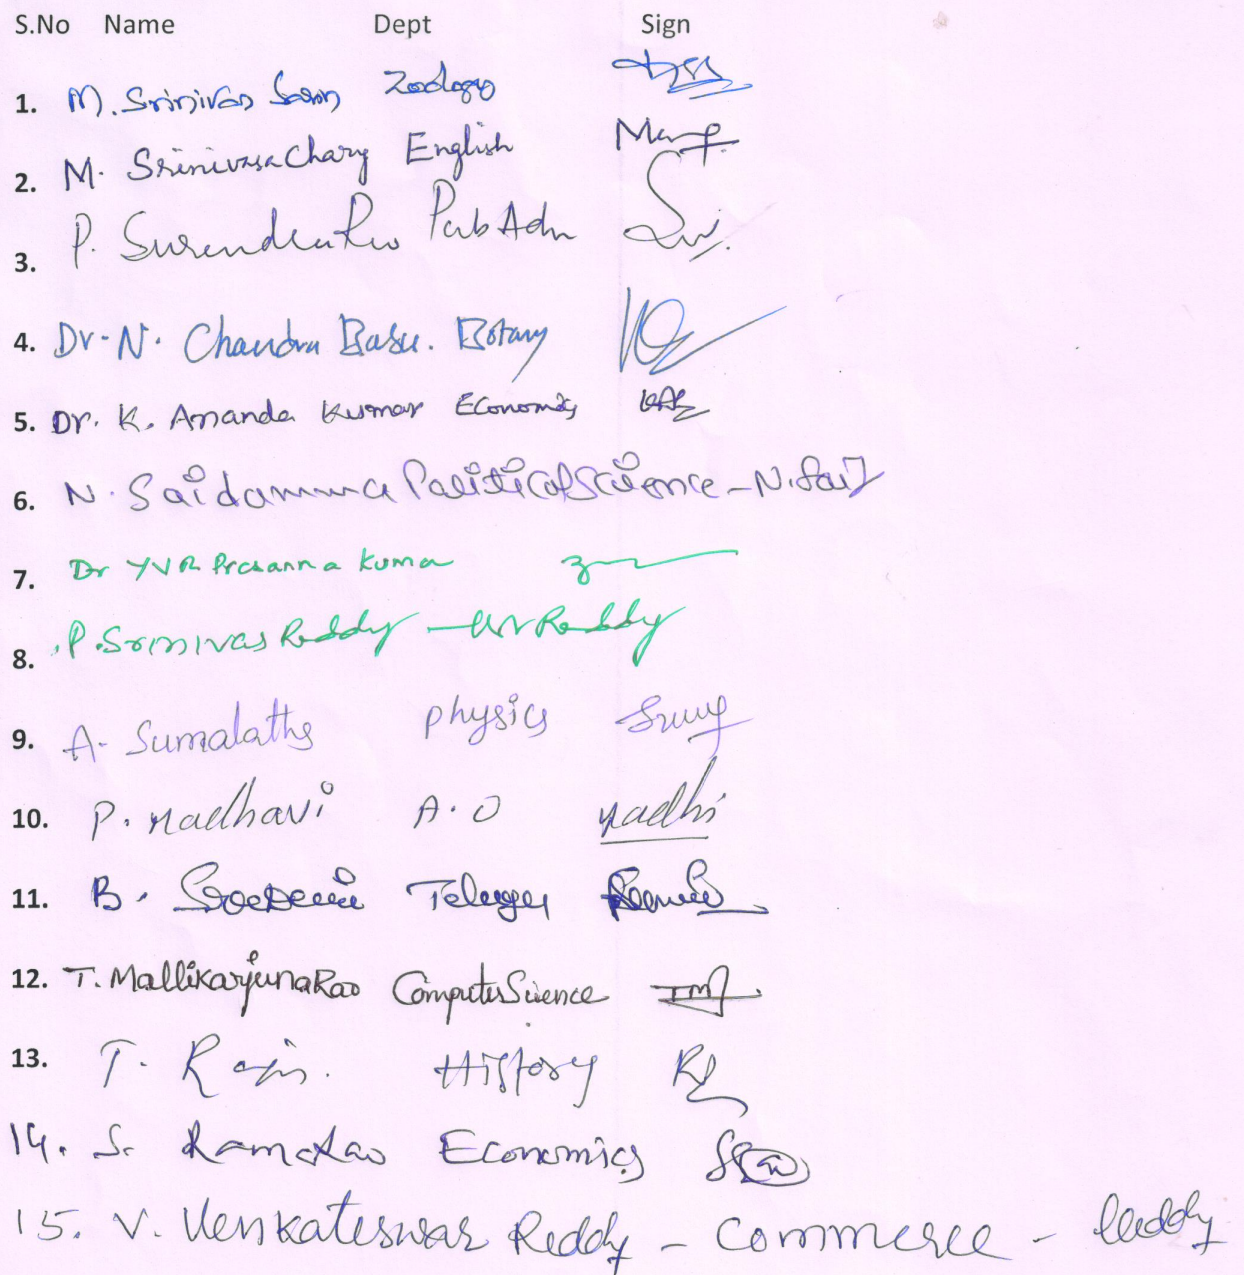 S.No Name Dept Sign
1. M. Srinivas Zoology
2. M. Srinivasa Chary English
3. P. Surender Rao Pub Adn
4. Dr. N. Chandra Babu. Botany
5. Dr. K. Ananda Kumar Economics
6. N. Saidamma Political Science - N. Sai
7. Dr YVR Prasanna Kuma
8. P. Srinivas Reddy Reddy
9. A. Sumalatha Physics
10. P. Madhavi A.O Madhi
11. B. Telugu
12. T. Mallikarjuna Rao Computer Science TM
13. T. Raju. History
14. S. Rama Rao Economics
15. V. Venkateswar Reddy - Commerce - Reddy